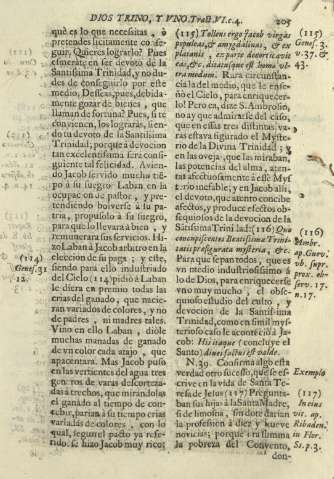 DIOS TRINO, Y VNO. Trat. VI. c. 4. 205
què es lo que necessitas, ò
pretendes licitamente conse-
guir. Quieres lograrlo? Pues
esmerate en ser devoto de la
Santissima Trinidad, y no du-
des de conseguirlo por este
medio. Deseas, pues, debida-
mente gozar de bienes, que
llaman de fortuna? Pues, si te
convienen, los lograràs, sien-
do tu devoto de la Santissima
Trinidad; porque à devocion
tan excelentissima serà consi-
guiente tal felicidad. Avien-
do Jacob servido mucho tiẽ-
po à su suegro Laban en la
ocupacion de pastor, y pre-
tendiendo bolverse à la pa-
tria, propusolo à su suegro,
para que lo llevara à bien, y
remunerara sus servicios. Hi-
zo Labàn à Jacob arbitro en la
eleccion de su paga; y este,
siendo para ello industriado
del Cielo (114) pidiò à Laban
le diera en premio todas las
crias del ganado, que nacie-
ran variados de colores, y no
de padres, ni madres tales.
Vino en ello Laban, diòle
muchas manadas de ganado
de vn color cada atajo, que
apacentara. Mas Jacob puso
en las vertientes del agua tres
generos de varas descorteza-
das à trechos, que mirandolas
el ganado al tiempo de con-
cebir, parian à su tiempo crias
variadas de colores, con lo
qual, segun el pacto ya refe-
rido, se hizo Jacob muy rico:
(114)
Genes. 31
12.
(115) Tollens ergo Jacob virgas
populeas, & amygdalinas, & ex
platanis, ex parte decorticavit
eas, &c. ditatusque est homo vl-
tra modum. Rara circunstan-
cia la del medio, que la ense-
ñe el Cielo, para enriquecer-
lo! Pero ea, dize S. Ambrosio,
no ay que admirarse del caso,
que en essas tres distintas va-
ras estava figurado el Myste-
rio de la Divina Trinidad; y
en las ovejas, que las miraban,
las potencias del alma, aten-
tas afectuosamente à esse Mys
terio inefable; y en Jacob alli,
el devoto, que atento concibe
afectos, y produce efectos ob-
sequiosos de la devocion de la
Sãtissima Trinidad: (116) Qua
concupiscentes Beatissimæ Trini-
tatis præferrata mysteria, &c.
Para que sepan todos, que es
vn medio industriosissimo à
lo de Dios, para enriquecerse
vno muy mucho, el obse-
quioso estudio del culto, y
devocion de la Santissima
Trinidad, como en simil mys-
terioso caso le aconteciò à Ja-
cob: Hic itaque (concluye el
Santo) dives factus est valde.
N. 39. Confirma assi esta
verdad otro sucesso, que se es-
crive en la vida de Santa Te-
resa de Jesus (117) Pregunta-
ban sus hijas à la Santa Madre,
si de limosna, sin dote darian
la profession à diez y nueve
novicias; porque era summa
la pobreza del Convento,
don-
(115)
Genes. 3
v. 37. &
43.
(116)
Ambr.
ap. Garo;
vb. supr.
prox. ob-
serv. 17.
n. 17.
Exemplo
(117)
In eius
vit. ap.
Ribaden.
in Flor.
St. p. 3.